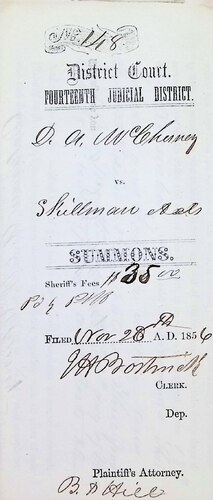 No 148
District Court.
FOURTEENTH JUDICIAL DISTRICT.
D. A. McChesney
vs.
Skillman Adls
SUMMONS.
Sheriff's Fees $35 00
Pd by Plff
FILED, Nov 28th A.D. 1856
J H Bostwick
CLERK.
Dep.
Plaintiff's Attorney.
B. D Hill